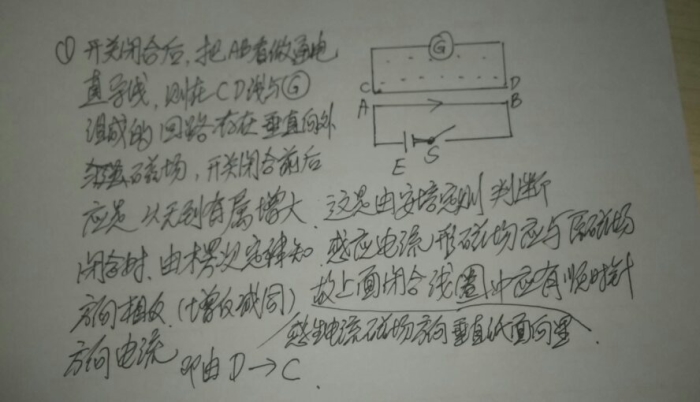 ① 开关闭合后,把AB看做通电
直导线,则在CD线与Ⓖ
组成的回路存在垂直向外
磁场,开关闭合前后
应是从无到有属增大.这是由安培定则判断
闭合时,由楞次定律知 感应电流形磁场应与原磁场
方向相反.(增反减同)故上面闭合线圈中应有顺时针
方向电流 感生电流磁场方向垂直纸面向里.
即由D→C.
G
C D
A B
E S